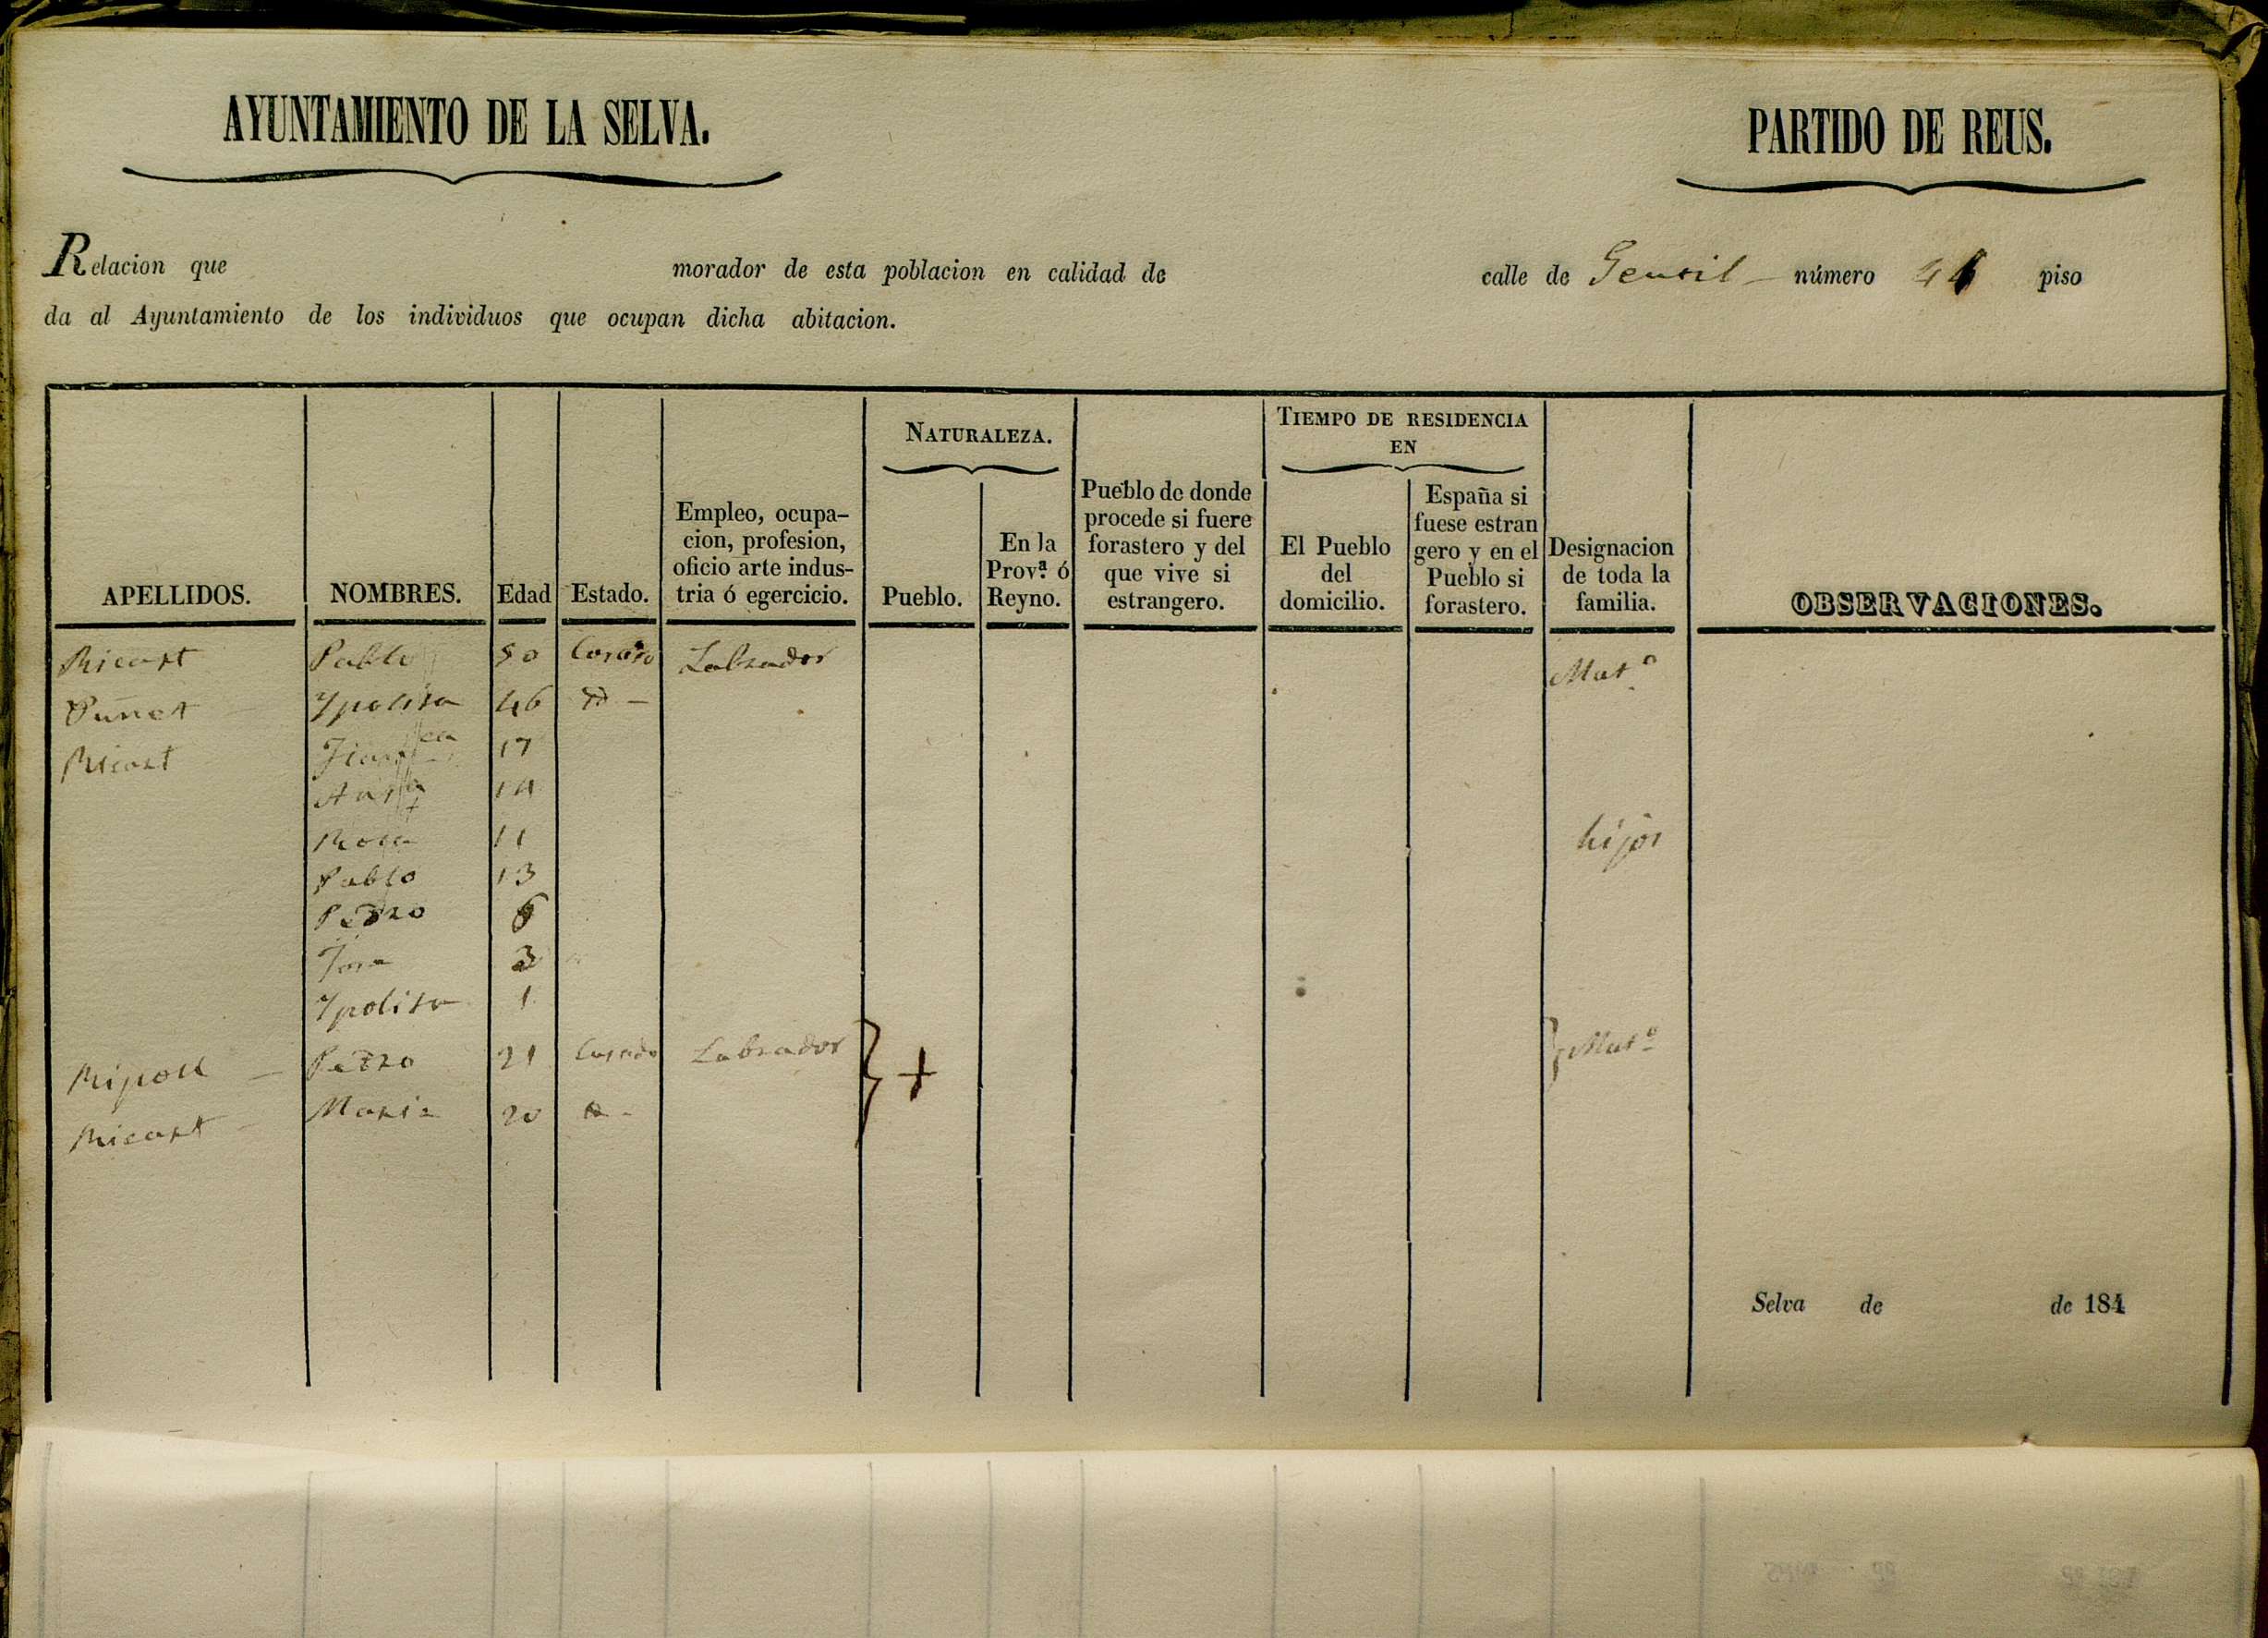 AYUNTAMIENTO DE LA SELVA.
PARTIDO DE REUS.
Relacion que morador de esta poblacion en calidad de calle de Gensil número piso
da al Ayuntamiento de los individuos que ocupan dicha abitacion.
APELLIDOS.
NOMBRES.
Edad
Estado.
Empleo, ocupa-
cion, profesion,
oficio arte indus-
tria ó egercicio.
NATURALEZA.
Pueblo.
En la
Provª. ó
Reyno.
Pueblo de donde
procede si fuere
forastero y del
que vive si
estrangero.
TIEMPO DE RESIDENCIA
EN
El Pueblo
del
domicilio.
España si
fuese estran
gero y en el
Pueblo si
forastero.
Designacion
de toda la
familia.
OBSERVACIONES.
Ricart Pablo 50 Casado Labrador Matº
Puñet Ypolita 46
Ricart 17
14
Rosa 11 hijos
Pablo 13
Pedro 6
Jose 3
Ypolita 1
Ripoll Pedro 21 Casado Labrador } + } Matº
Ricart Maria 20
Selva de de 184